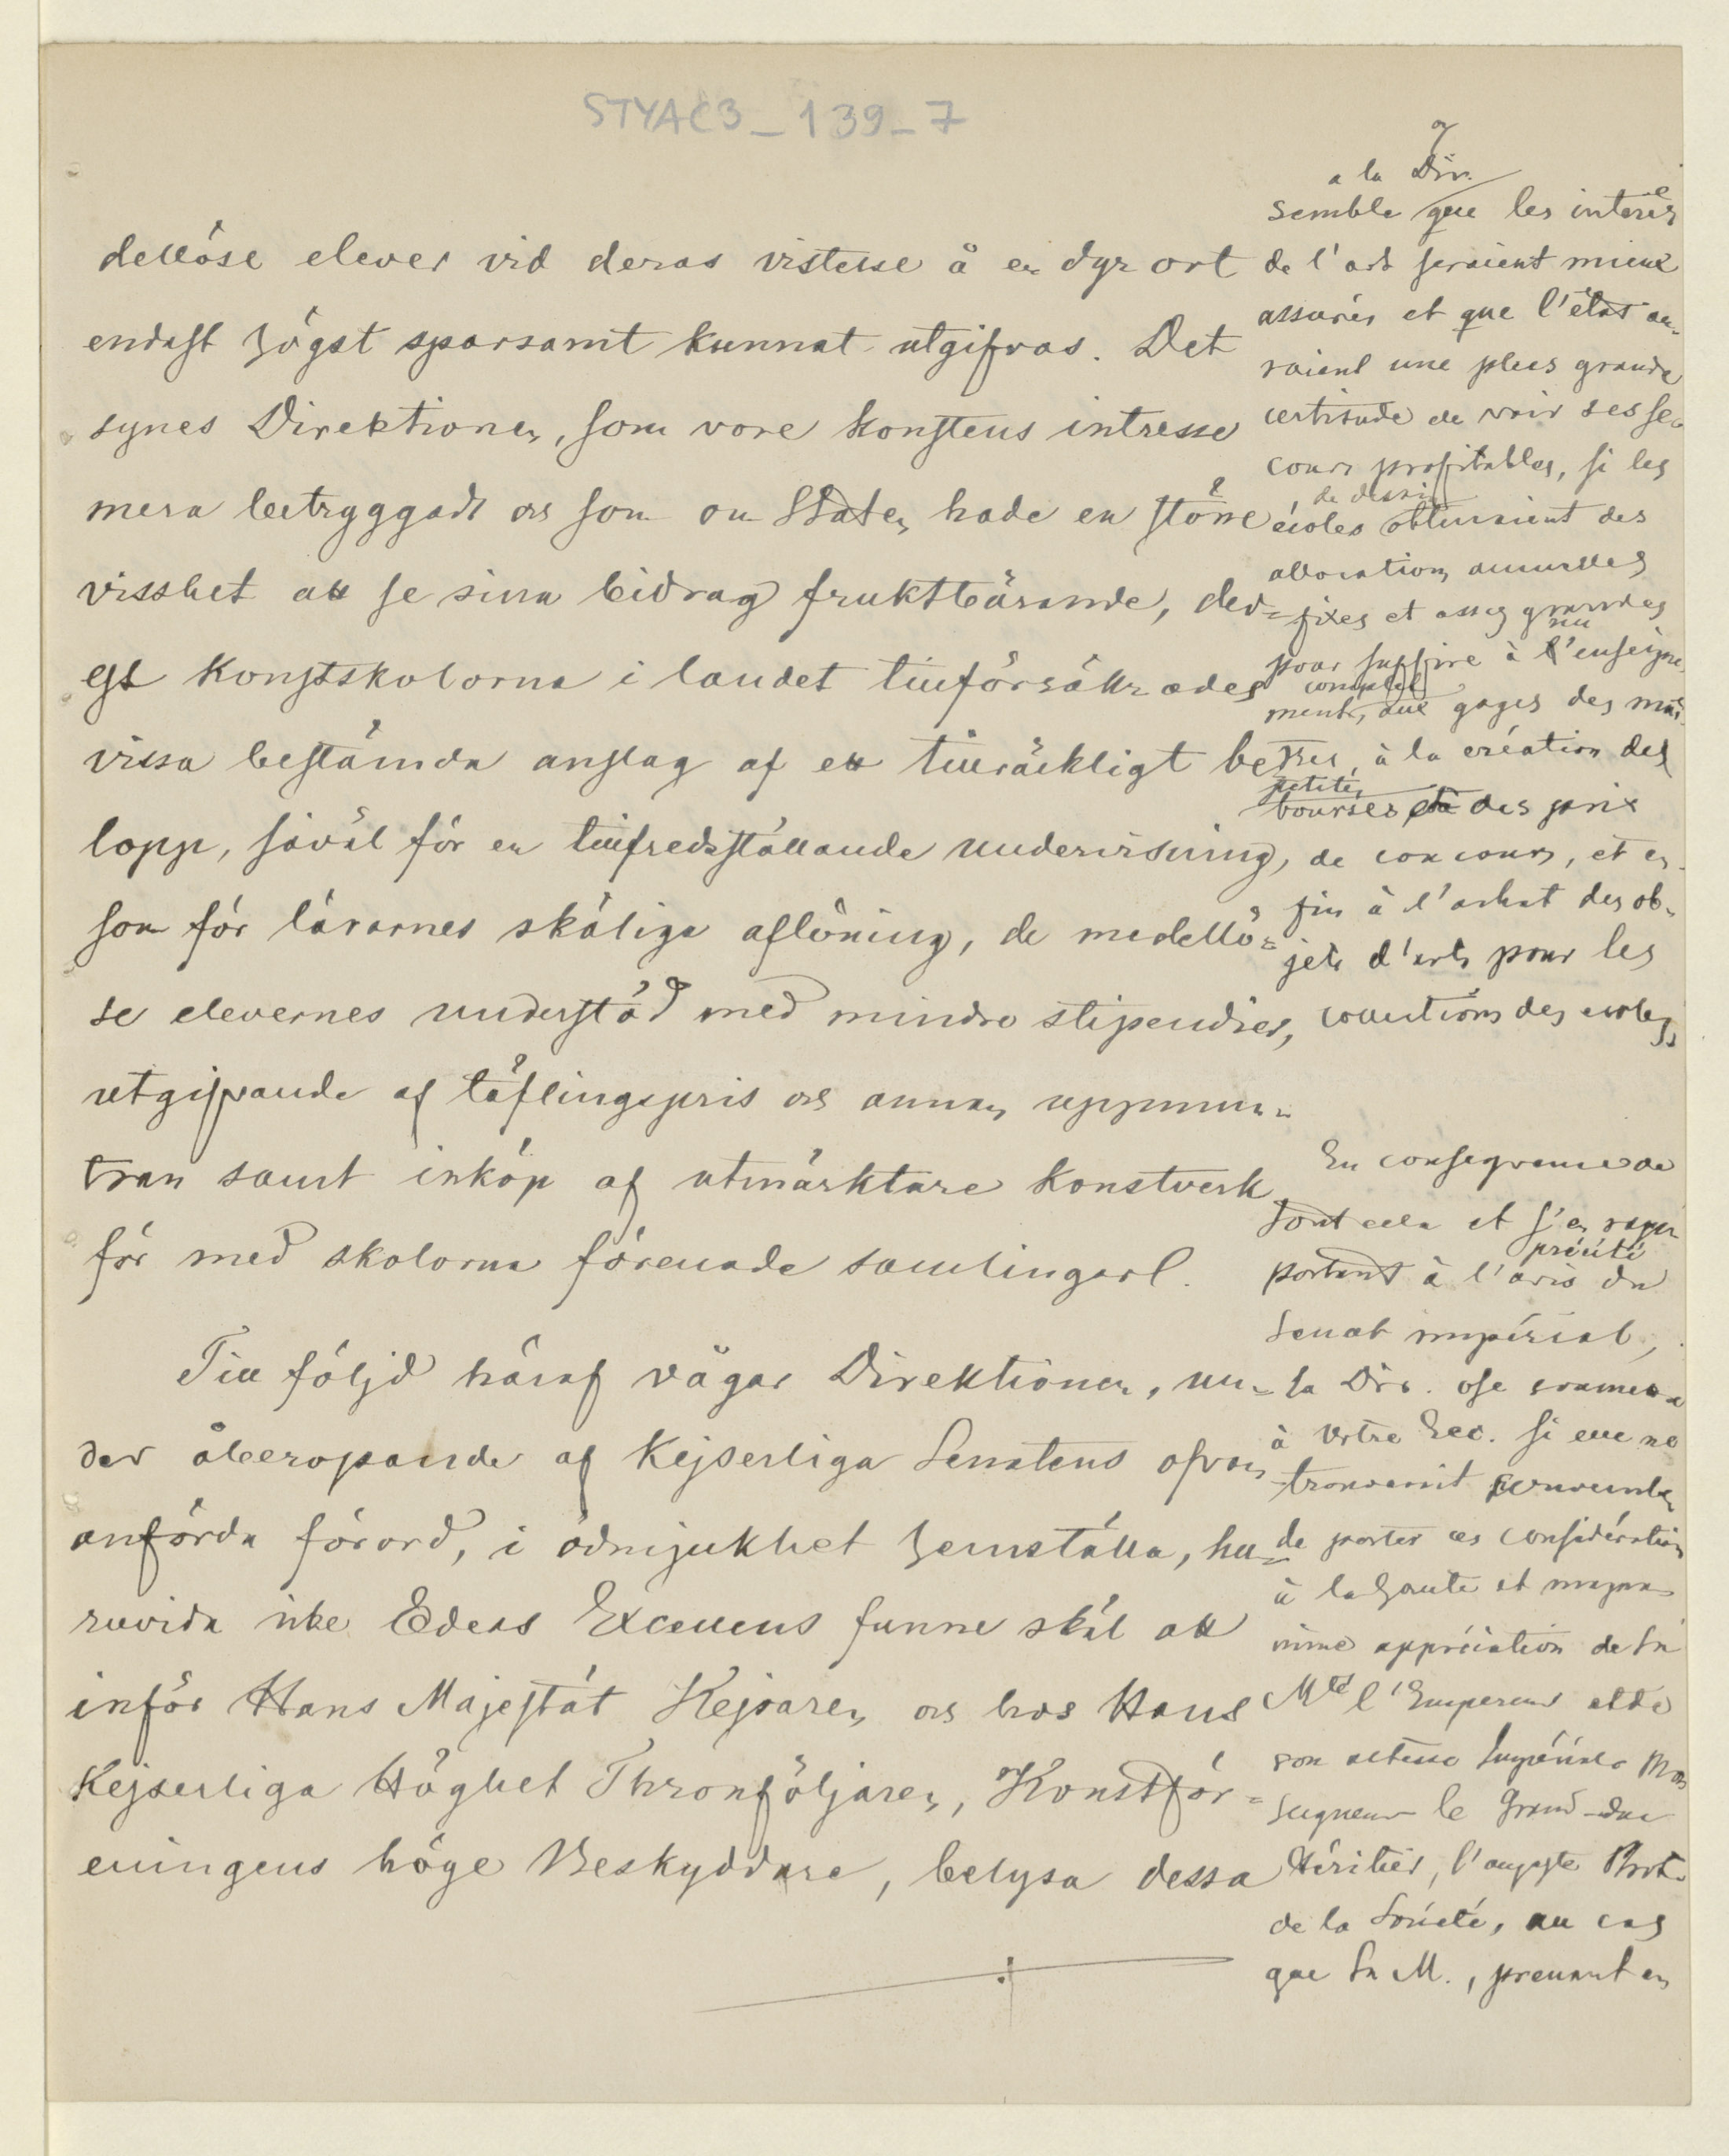 STYAC3_139-7
dellöse elever vid deras vistelse å en dyr ort
endast högst sparsamt kunnat utgifvas. Det
synes Direktionen, som vore konstens intresse
mera betryggadt och som om Staten hade en större
visshet att se sina bidrag fruktbärande, der-
est konstskolorna i landet tillförsäkrades
vissa bestämda anslag af ett tillräckligt be-
lopp, såväl för en tillfredsställande undervisning,
som för lärarnes skäliga aflöning, de medellö-
se elevernes understöd med mindre stipendier,
utgifvande af täflingspris och annan uppmun-
tran samt inköp af utmärktare konstverk
för med skolorna förenade samlingar.
Till följd häraf vågar Direktionen, un-
der åberopande af Kejserliga Senatens ofvan
anförda förord, i ödmjukhet hemställa, hu-
ruvida icke Eders Excellens funne skäl att
inför Hans Majestät Kejsaren och hos Hans
Kejserliga Höghet Thronföljaren, Konstför-
eningens höge Beskyddare, belysa dessa
a la Dir.
semble que les interêts
de l'art seraient mieux
assurés et que l'état au-
raient une plus grande
certitude de voir ses se-
cours profitables, si les
de dessin
écoles obtenaient des
allocations annuelles
fixes et assez grandes
pour suffire à l'enseigne-
complet
ment, aux gages des maî-
tres, à la création des
petites
bourses et des prix
de concours, et en-
fin à l'achat des ob-
jets d'arts pour les
collections des écoles
En consequence de
tout cela et s'en rap-
précité
portant à l'avis du
Senat impérial,
la Dir. ose soumettre
à Votre Exc. si elle ne
trouverait convenable
de porter ces considérations
à la haute et magna-
nime appréciation de Sa
Mté l'Empereur et de
son altesse Impériale Mon
seigneur le Grand-duc
Héritier, l'auguste Prot.
de la Société, au cas
que Sa M., prenant en